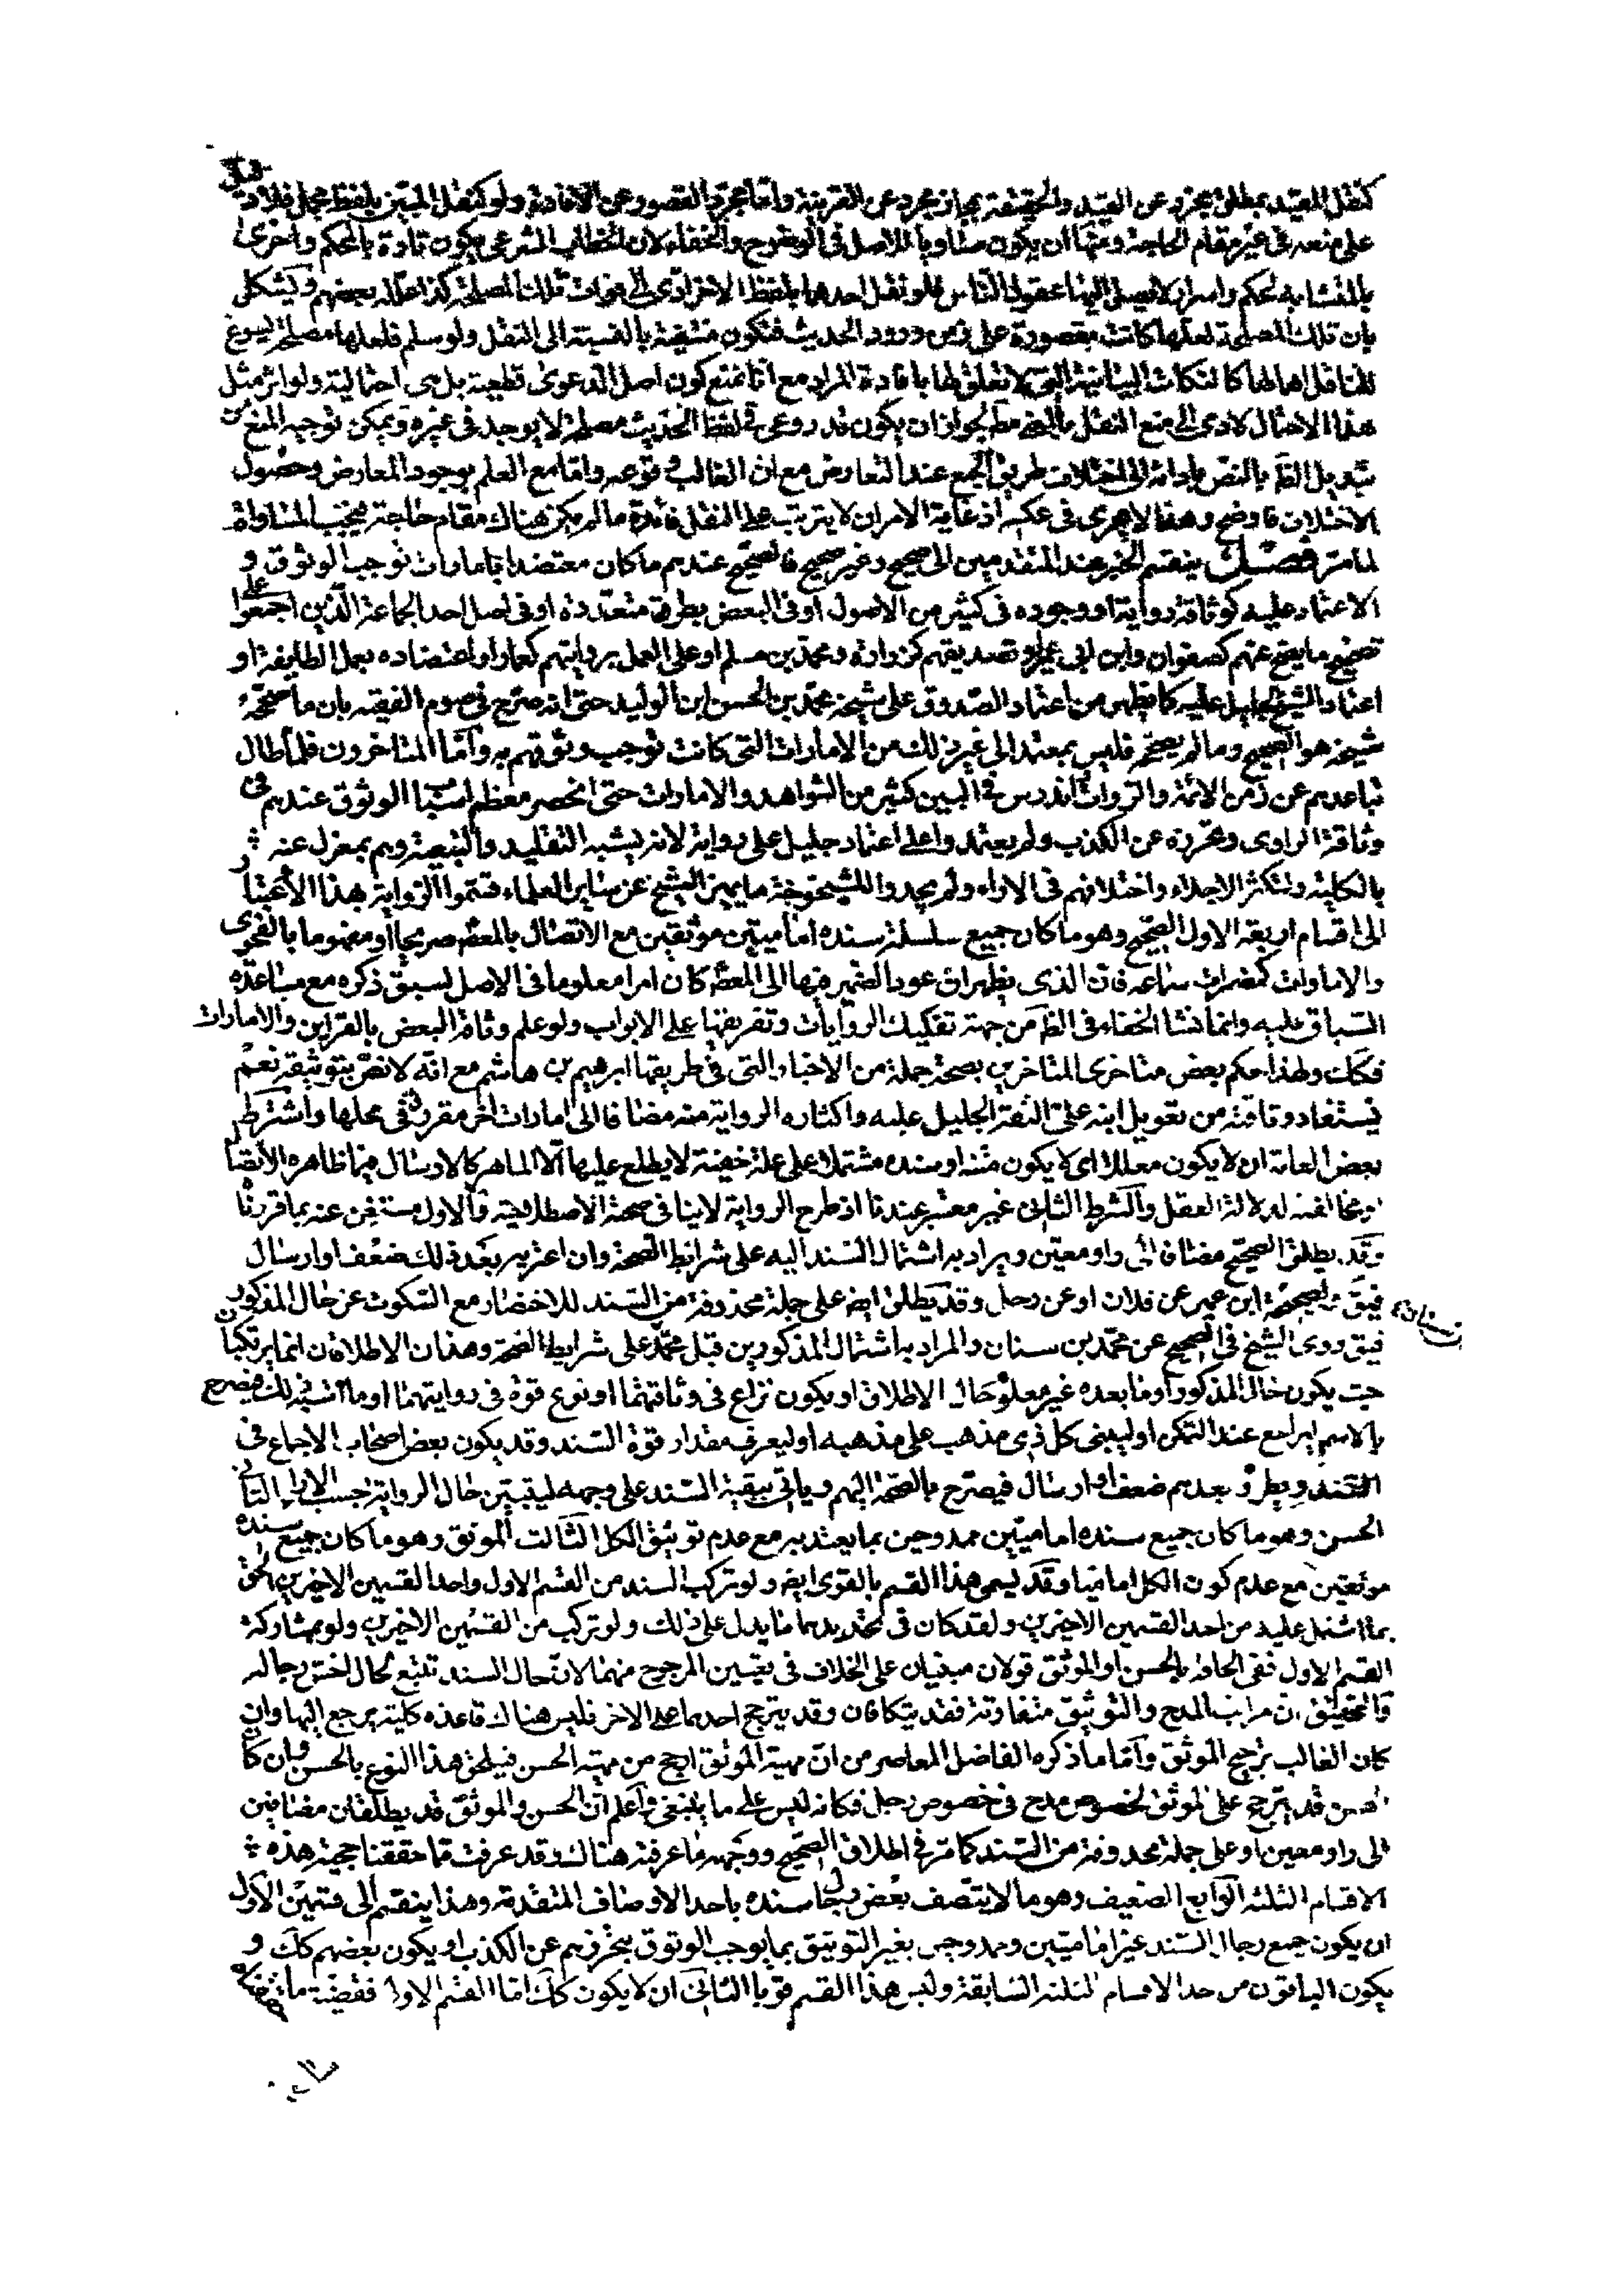 كنقل المقيد بمطلق مجرد عن القيد والحقيقة بمجاز مجرد عن القرينة واما مجرد القصور عن الافادة ولو كنقل المبين بلفظ مجمل فلا دليل
على منعه في غير مقام الحاجة ومنها ان يكون مساويا للاصل في الوضوح والخفاء لان الخطاب الشرعي يكون تارة بالمحكم واخرى
بالمتشابه لحكم واسرار لا يصل اليها عقول الناس فلو نقل احدهما بلفظ الاخر ادى الى فوات تلك المصلحة كذا علله بعضهم ويشكل
بان تلك المصلحة لعلها كانت مقصورة على زمن ورود الحديث فتكون منتفية بالنسبة الى النقل ولو سلم فلعلها مصلحة يسوغ
للناقل اهمالها كالنكات البيانية التي لا تعلق لها بافادة المراد مع انا نمنع كون اصل الدعوى قطعية بل هي احتمالية ولو اثر مثل
هذا الاحتمال لادى الى منع النقل بالمعنى مط لجواز ان يكون قد روعي في لفظ الحديث مصلحة لا يوجد في غيره ويمكن توجيه المنع من
تبديل الظ بالنص بادائه الى اختلاف طريق الجمع عند التعارض مع ان الغالب وقوعه واما مع العلم بوجود المعارض وحصول
الاختلاف فاوضح وهذا لا يجري في عكسه اذ غاية الامر ان لا يترتب على النقل فائدة ما لم يكن هناك مقام حاجة فيجب المساواة
لما مر فصل ينقسم الخبر عند المتقدمين الى صحيح وغير صحيح فالصحيح عندهم ما كان معتضدا بامارات توجب الوثوق و
الاعتماد عليه كوثاقة رواته او وجوده في كثير من الاصول او في البعض بطرق متعددة او في اصل احد الجماعة الذين اجمعوا على
تصحيح ما يصح عنهم كصفوان وابن ابي عمير او تصديقهم كزرارة ومحمد بن مسلم او على العمل بروايتهم كعمار او اعتضاده بعمل الطايفة او
اعتماد الشيخ الجليل عليه كما يظهر من اعتماد الصدوق على شيخه محمد بن الحسن ابن الوليد حتى انه صرح في صوم الفقيه بان ما صححه
شيخه هو الصحيح وما لم يصححه فليس بمعتمد الى غير ذلك من الامارات التي كانت توجب وثوقهم به واما المتاخرون فلما طال
تباعدهم عن زمن الائمة والرواة اندرس في البين كثير من الشواهد والامارات حتى انحصر معظم اسباب الوثوق عندهم في
وثاقة الراوي وتحرزه عن الكذب ولم يعتمدوا على اعتماد جليل على رواية لانه يشبه التقليد والتبعية وهم بمعزل عنه
بالكلية ولتكثر الاجلاء واختلافهم في الاراء ولم يجدوا للشيخوخة ما يميز الشيخ عن ساير العلماء فقسموا الرواية بهذا الاعتبار
الى اقسام اربعة الاول الصحيح وهو ما كان جميع سلسلة سنده اماميين موثقين مع الاتصال بالمعصوم صريحا او مفهوما بالفحوى
والامارات كمضمرات سماعة فان الذي يظهر ان عود الضمير فيها الى المعصوم كان امرا معلوما في الاصل لسبق ذكره مع مساعدة
السياق عليه وانما نشا الخفاء في الظ من جهة تفكيك الروايات وتفريقها على الابواب ولو علم وثاقة البعض بالقراين والامارات
فكك ولهذا حكم بعض متاخري المتاخرين بصحة جملة من الاخبار التي في طريقها ابرهيم بن هاشم مع انه لا نص بتوثيقه نعم
يستفاد وثاقته من تعويل ابنه علي الثقة الجليل عليه واكثاره الرواية منه مضافا الى امارات اخر مقررة في محلها واشترط
بعض العامة ان لا يكون معللا اي لا يكون متنه او سنده مشتملا على علة خفية لا يطلع عليها الا الماهر كالارسال فيما ظاهره الاتصال
او مخالفته لدلالة العقل والشرط الثاني غير معتبر عندنا اذ طرح الرواية لا ينافي صحته الاصطلاحية والاول مستغن عنه بما قررنا
وقد يطلق الصحيح مضافا الى راو معين ويراد به اشتمال السند اليه على شرائط الصحة وان اعتراه بعد ذلك ضعف او ارسال
فيق صحيحة ابن عمير عن فلان او عن رجل وقد يطلق ايض على جملة محذوفة من السند للاختصار مع السكوت عن حال المذكور
فيق روى الشيخ في الصحيح عن محمد بن سنان والمراد به اشتمال المذكورين قبل محمد على شرايط الصحة وهذان الاطلاقان انما يرتكبان
حيث يكون حال المذكور او ما بعده غير معلوم حال الاطلاق او يكون نزاع في وثاقتهما او نوع قوة في روايتهما او ما اشبه ذلك فيصرح
بالاسم ليراجع عند التمكن او ليبنى كل ذي مذهب على مذهبه او ليعرف مقدار قوة السند وقد يكون بعض اصحاب الاجماع في
السند ويطرؤ بعدهم ضعف او ارسال فيصرح بالصحة اليهم وياتي ببقية السند على وجهه ليتبين حال الرواية حسب الاراء الثاني
الحسن وهو ما كان جميع سنده اماميين ممدوحين بما يعتد به مع عدم توثيق الكل الثالث الموثق وهو ما كان جميع سنده
موثقين مع عدم كون الكل اماميا وقد يسمى هذا القسم بالقوي ايض ولو تركب السند من القسم الاول واحد القسمين الاخيرين لحق
بما اشتمل عليه من احد القسمين الاخيرين ولقد كان في تحديدهما ما يدل على ذلك ولو تركب من القسمين الاخيرين ولو بمشاركة
القسم الاول ففي الحاقه بالحسن او الموثق قولان مبنيان على الخلاف في تعيين المرجوح منهما لان حال السند تتبع لحال اخس رجاله
والتحقيق ان مراتب المدح والتوثيق متفاوتة فقد يتكافان وقد يترجح احدهما على الاخر فليس هناك قاعدة كلية يرجع اليها وان
كان الغالب ترجيح الموثق واما ما ذكره الفاضل المعاصر من ان مهية الموثق ارجح من مهية الحسن فيلحق هذا النوع بالحسن وان كان
الحسن قد يترجح على الموثق لخصوص مدح في خصوص رجل فكانه ليس على ما ينبغي واعلم ان الحسن والموثق قد يطلقان مضافين
الى راو معين او على جملة محذوفة من السند كما مر في اطلاق الصحيح ووجهه ما عرفته هناك وقد عرفت مما حققنا حجية هذه
الاقسام الثلثة الرابع الضعيف وهو ما لا يتصف بعض رجال سنده باحد الاوصاف المتقدمة وهذا ينقسم الى قسمين الاول
ان يكون جميع رجال السند غير اماميين وممدوحين بغير التوثيق بما يوجب الوثوق بتحرزهم عن الكذب او يكون بعضهم كك و
يكون الباقون من احد الاقسام الثلثة السابقة وليس هذا القسم قويا الثاني ان لا يكون كك اما القسم الاول فقضية ما